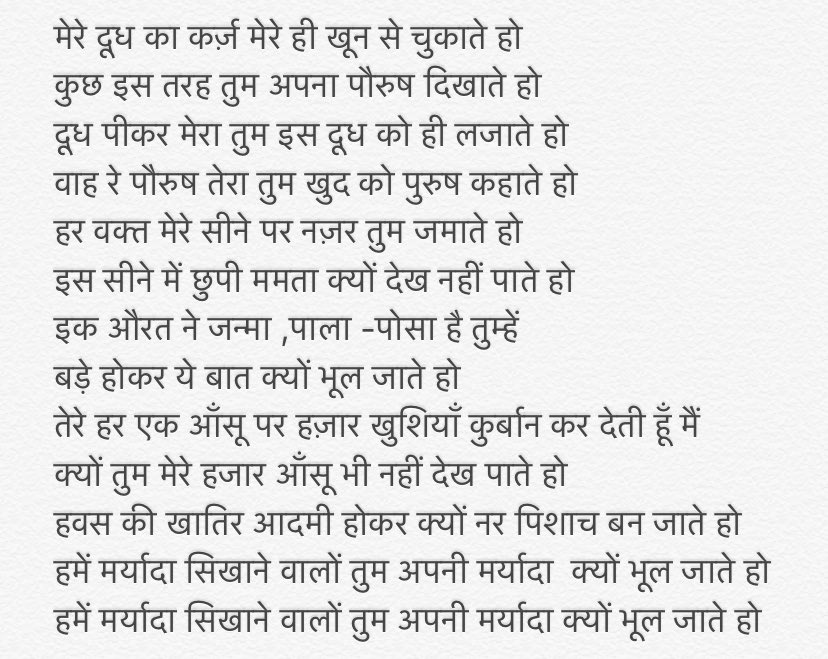 मेरे दूध का कर्ज़ मेरे ही खून से चुकाते हो
कुछ इस तरह तुम अपना पौरुष दिखाते हो
दूध पीकर मेरा तुम इस दूध को ही लजाते हो
वाह रे पौरुष तेरा तुम खुद को पुरुष कहाते हो
हर वक्त मेरे सीने पर नज़र तुम जमाते हो
इस सीने में छुपी ममता क्यों देख नहीं पाते हो
इक औरत ने जन्मा ,पाला -पोसा है तुम्हें
बड़े होकर ये बात क्यों भूल जाते हो
तेरे हर एक आँसू पर हज़ार खुशियाँ कुर्बान कर देती हूँ मैं
क्यों तुम मेरे हजार आँसू भी नहीं देख पाते हो
हवस की खातिर आदमी होकर क्यों नर पिशाच बन जाते हो
हमें मर्यादा सिखाने वालों तुम अपनी मर्यादा  क्यों भूल जाते हो
हमें मर्यादा सिखाने वालों तुम अपनी मर्यादा क्यों भूल जाते हो